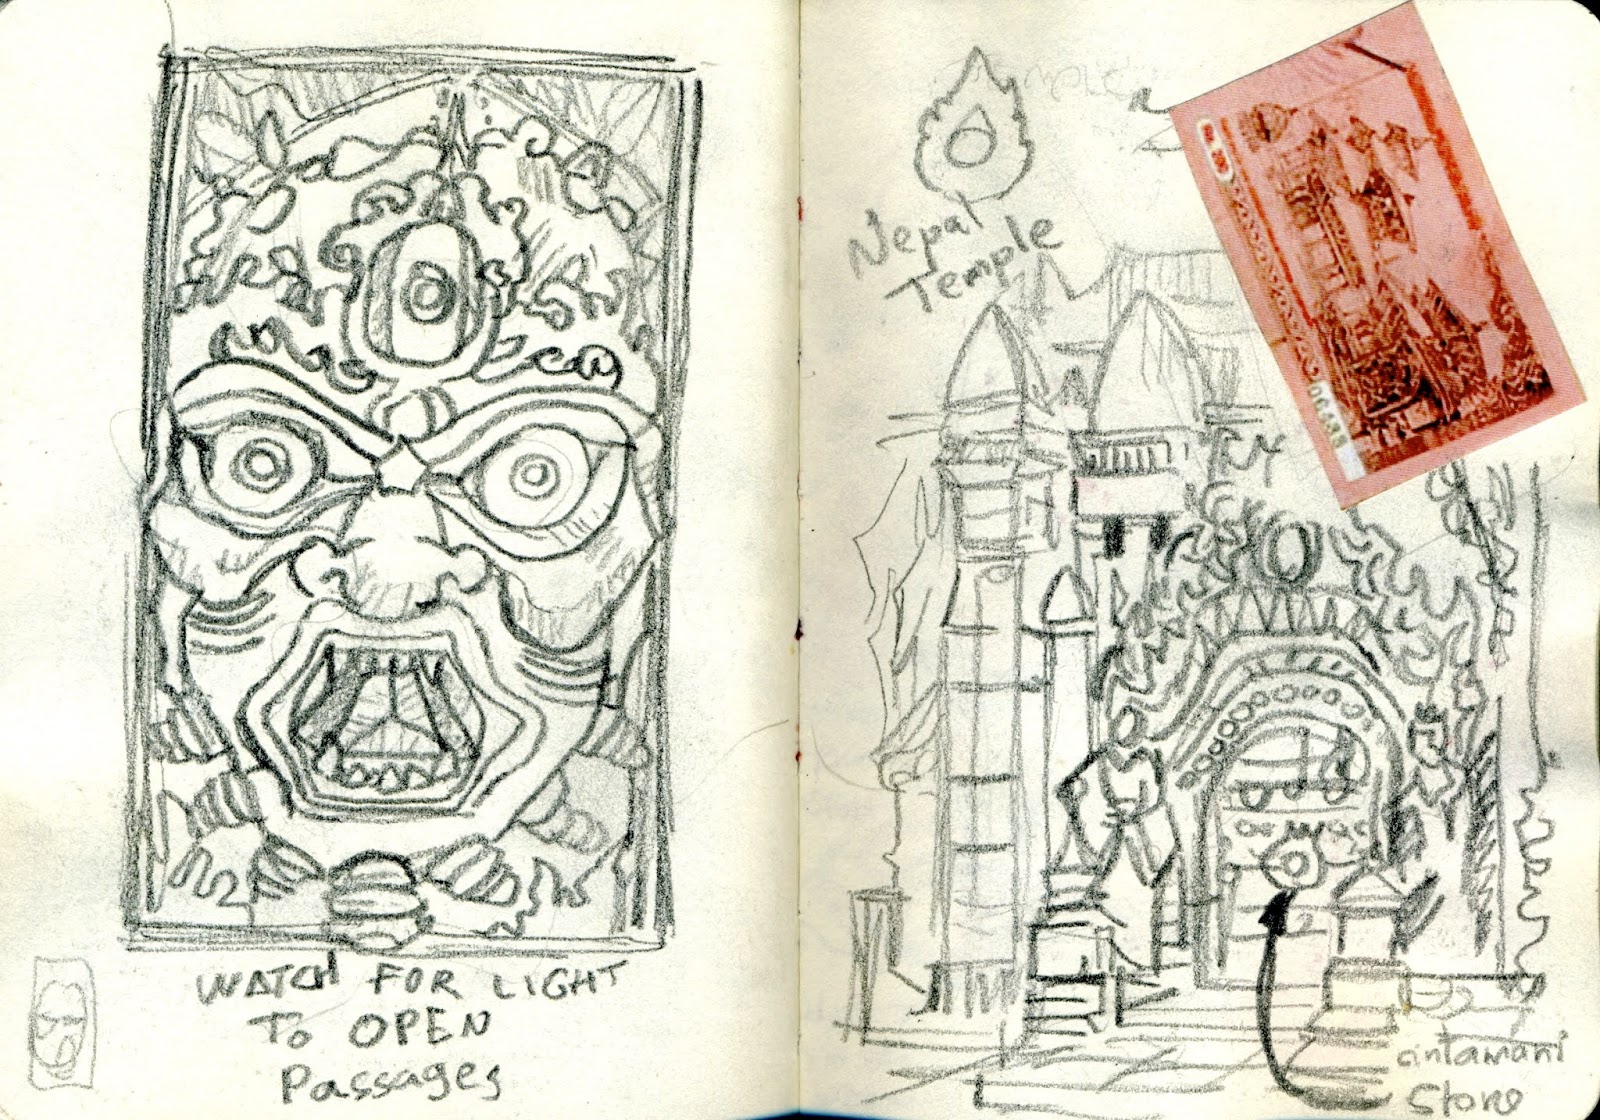 WATCH FOR LIGHT
To OPEN
Passages
Nepal
Temple
cintamani
Stone